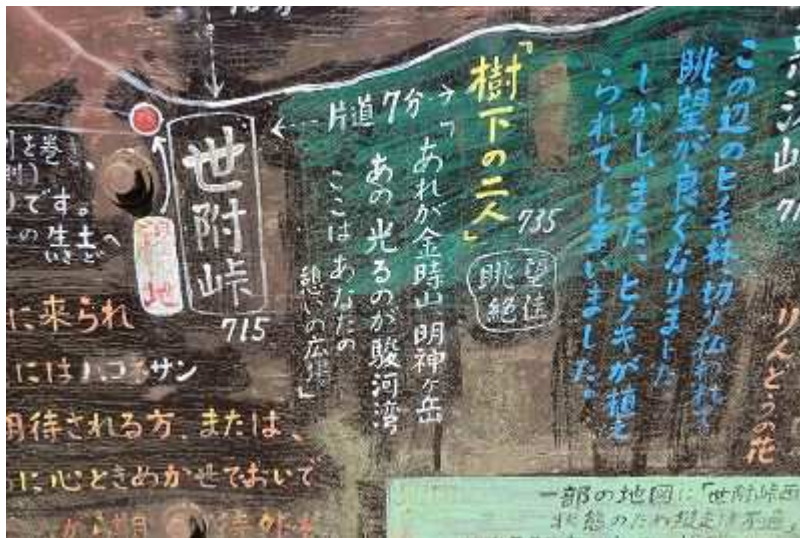 この辺のヒノキ林、切り払われて
眺望が良くなりました
しかし、また、ヒノキが植え
られてしまいました。
りんどうの花
『樹下の二人』
735
眺望
絶佳
←片道7分→
「あれが金時山、明神ヶ岳
あの光るのが駿河湾
ここはあなたの
憩いの広場」
世附峠
715
です。
の生土へ
いきど
に来られ
にはハコネサン
期待される方、または、
に心ときめかせておいで
一部の地図に「世附峠西
状態のため